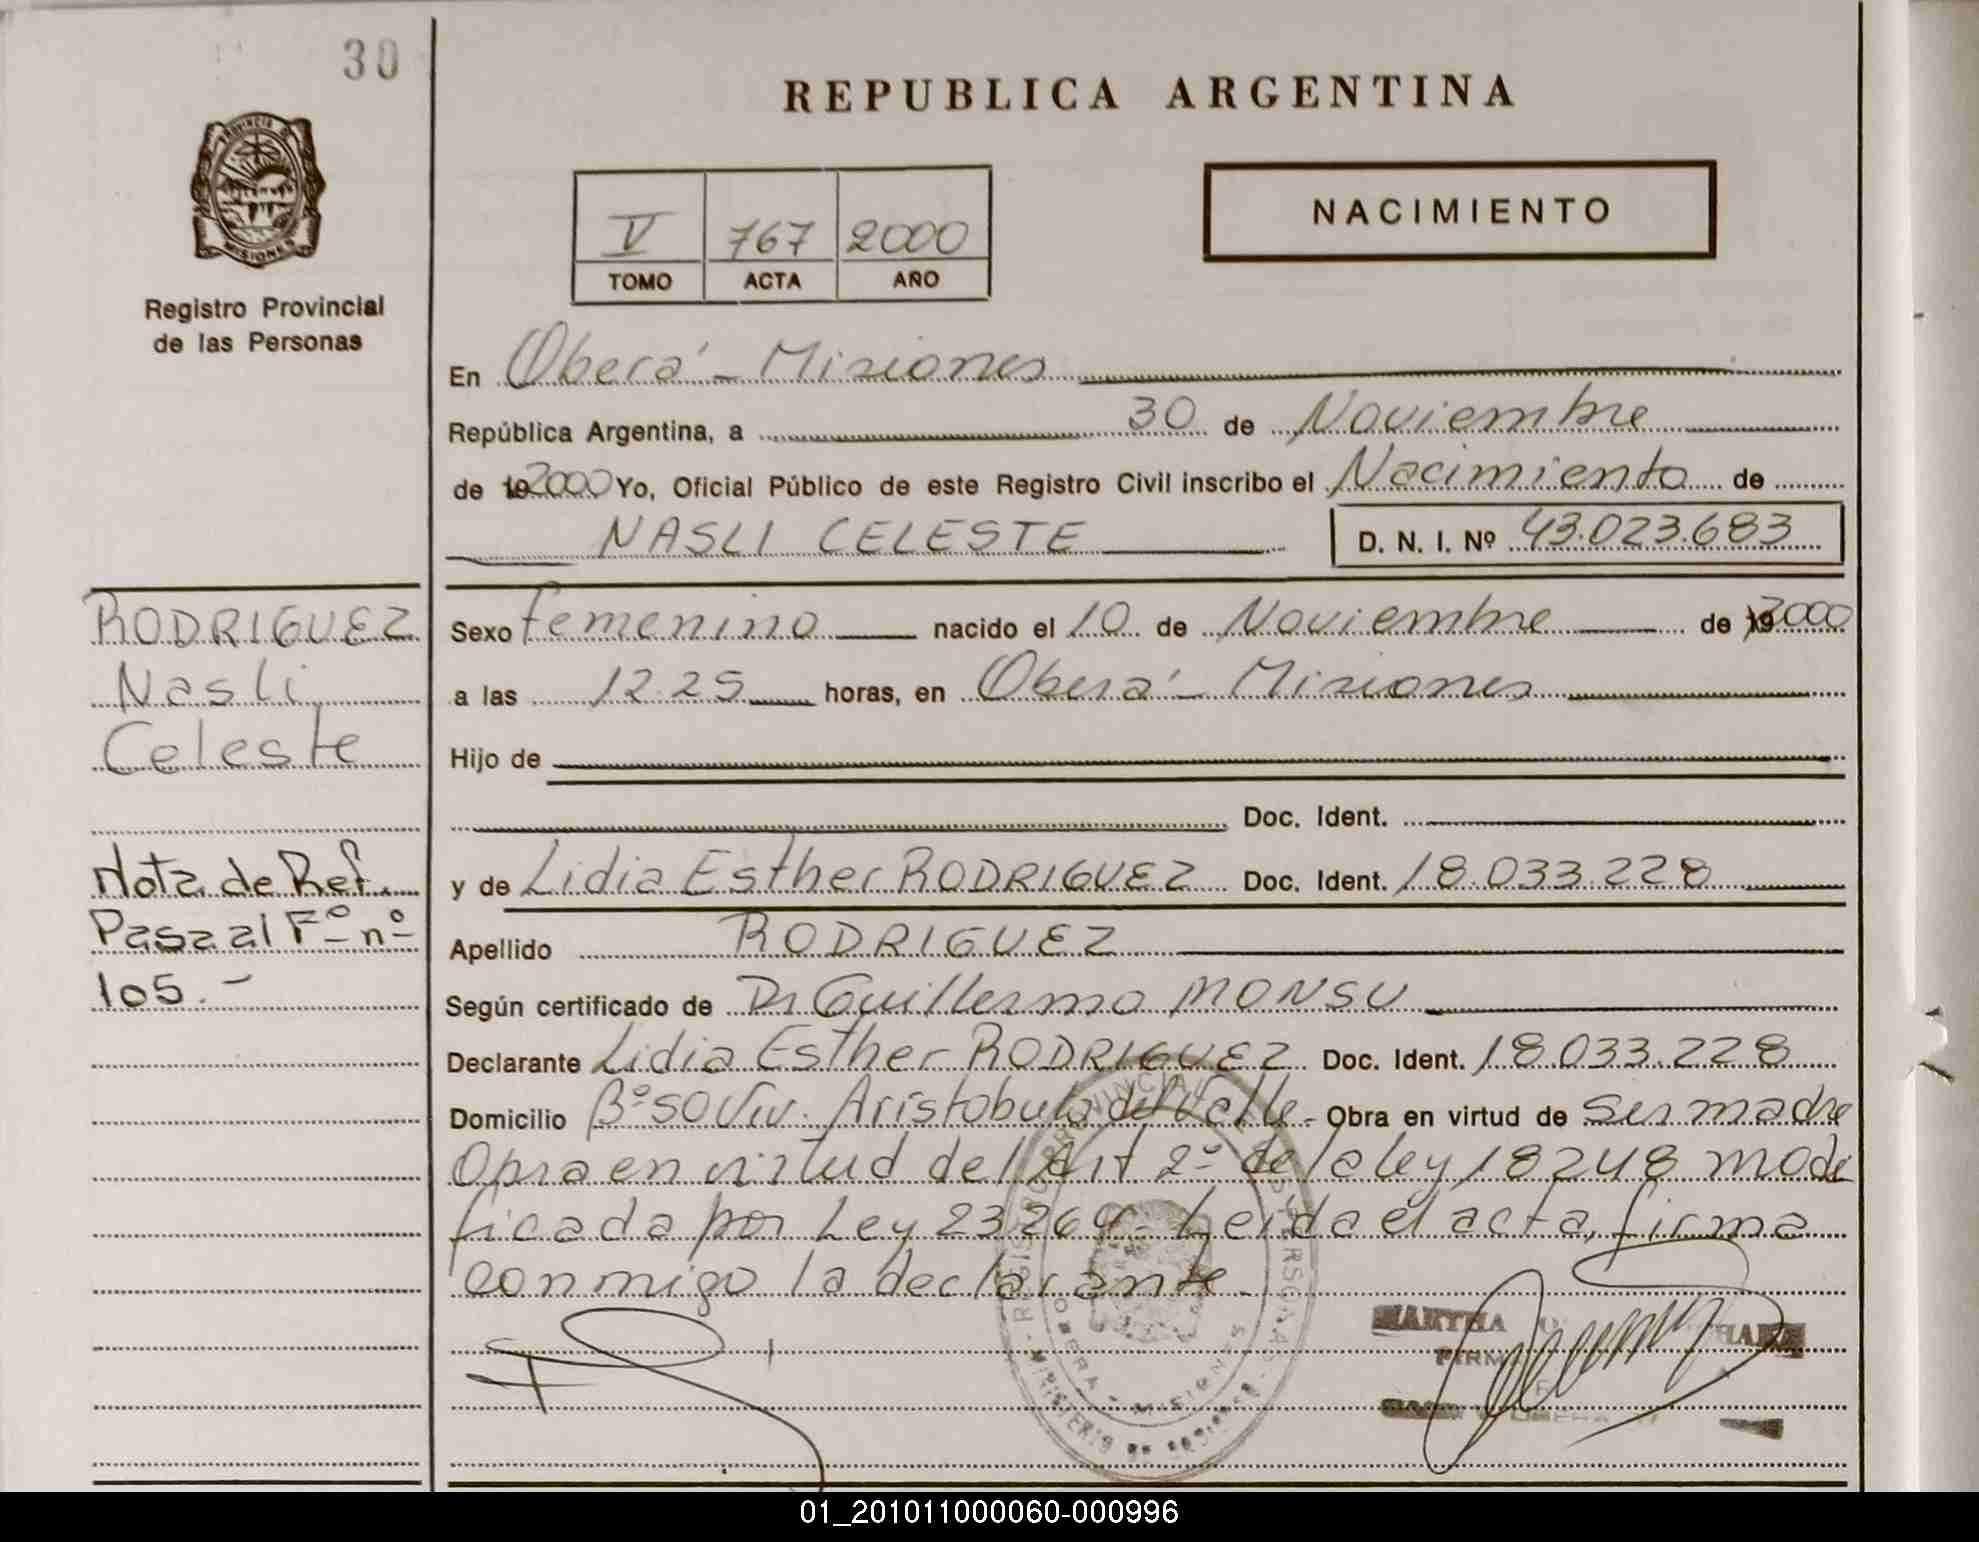 30
REPUBLICA ARGENTINA
PROVINCIA DE
MISIONES
Registro Provincial
de las Personas
NACIMIENTO
V 767 2000
TOMO ACTA AÑO
En Oberá - Misiones
República Argentina, a 30 de Noviembre
de 19 2000 Yo, Oficial Público de este Registro Civil inscribo el Nacimiento de
NASLI CELESTE D. N. I. Nº 43.023.683
RODRIGUEZ
Nasli
Celeste
Nota de Ref.
Pasa al Fº nº
105.-
Sexo femenino nacido el 10 de Noviembre de 19 2000
a las 12.25 horas, en Oberá - Misiones
Hijo de
Doc. Ident.
y de Lidia Esther RODRIGUEZ Doc. Ident. 18.033.228
Apellido RODRIGUEZ
Según certificado de Dr Guillermo MONSU
Declarante Lidia Esther RODRIGUEZ Doc. Ident. 18.033.228
Domicilio Bº 50 Viv. Aristobulo del Valle - Obra en virtud de ser madre
Opra en virtud del Art 2º de la ley 18248 modi
ficada por Ley 23264 - Leida el acta, firma
conmigo la declarante -
MARTHA
FIRMA
OBERA - MISIONES
MINISTERIO DE
01_201011000060-000996